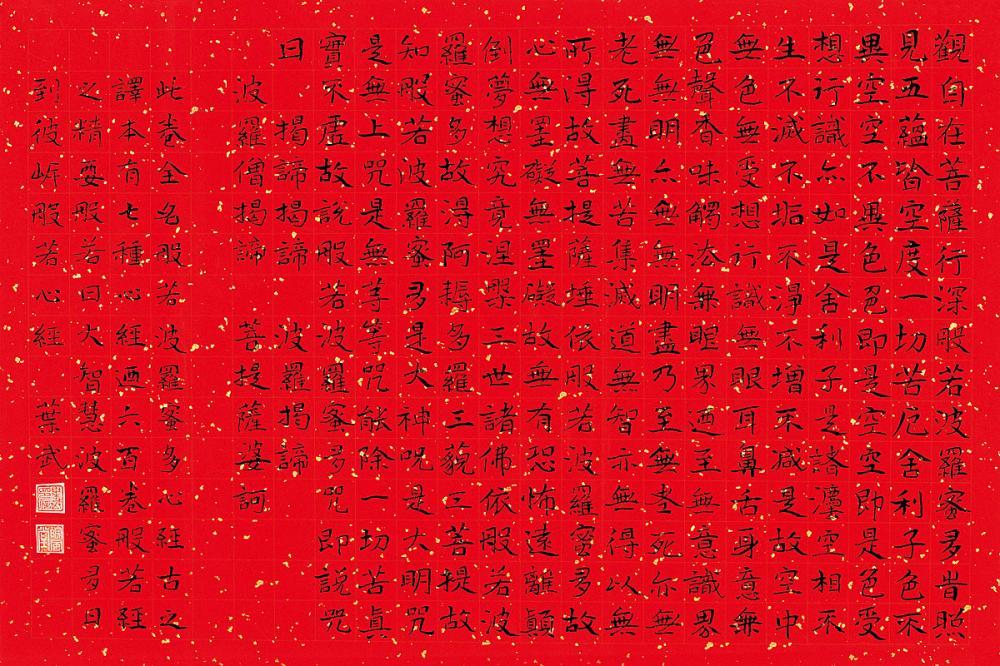 觀自在菩薩行深般若波羅蜜多旹照
見五蘊皆空度一切苦厄舍利子色不
異空空不異色色即是空空即是色受
想行識亦如是舍利子是諸灋空相不
生不滅不垢不淨不增不減是故空中
無色無受想行識無眼耳鼻舌身意無
色聲香味觸法無眼界迺至無意識界
無無明亦無無明盡乃至無老死亦無
老死盡無苦集滅道無智亦無得以無
所得故菩提薩埵依般若波羅蜜多故
心無罣礙無罣礙故無有恐怖遠離顛
倒夢想究竟涅槃三世諸佛依般若波
羅蜜多故得阿耨多羅三藐三菩提故
知般若波羅蜜多是大神咒是大明咒
是無上咒是無等等咒能除一切苦真
實不虛故說般若波羅蜜多咒即說咒
曰 揭諦揭諦 波羅揭諦
波羅僧揭諦 菩提薩婆訶
此卷全名般若波羅蜜多心經古之
譯本有七種心經迺六百卷般若經
之精要般若曰大智慧波羅蜜多曰
到彼岸般若心經 葉武